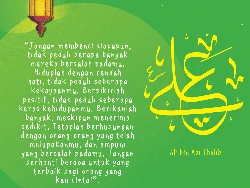 "Jangan membenci siapapun,
tidak peduli berapa banyak
mereka bersalah padamu.
Hiduplah dengan rendah
hati, tidak peduli seberapa
kekayaanmu. Berpikirlah
positif, tidak peduli seberapa
keras kehidupanmu. Berikanlah
banyak, meskipun menerima
sedikit. Tetaplah berhubungan
dengan orang-orang yang telah
melupakanmu, dan ampuni
yang bersalah padamu. Jangan
berhenti berdoa untuk yang
terbaik bagi orang yang
kau cintai".
علي
Ali bin Abi Thalib